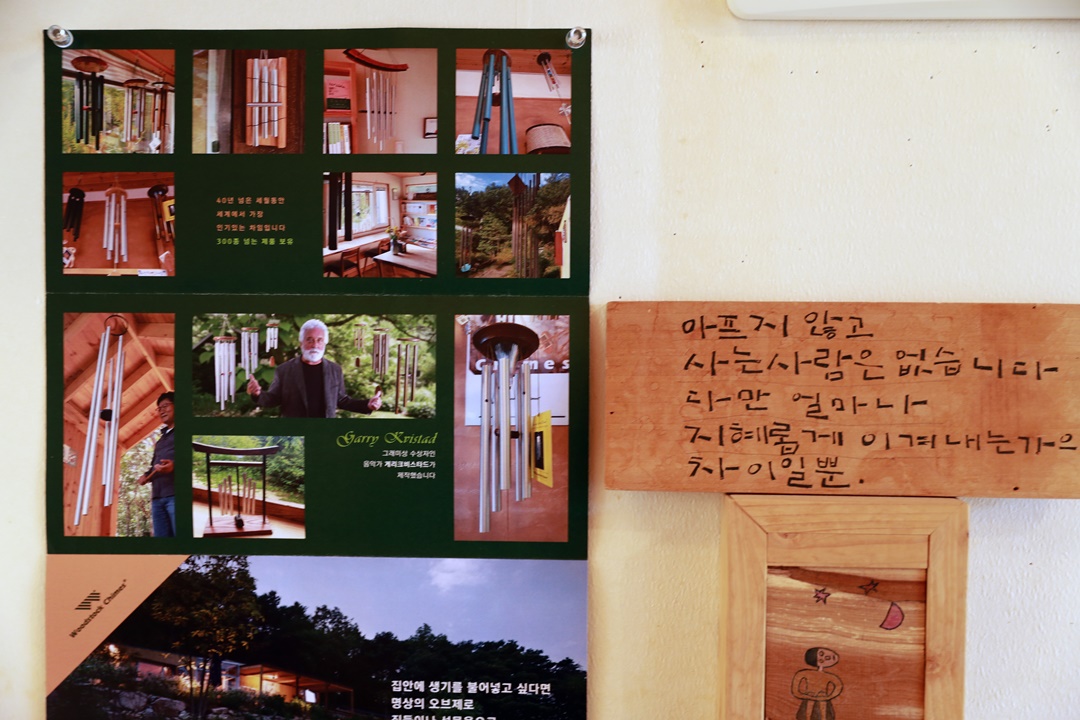 40년 넘은 세월동안
세계에서 가장
인기있는 차임입니다
300종 넘는 제품 보유
Garry Kvistad
그래미상 수상자인
음악가 게리크비스타드가
제작했습니다
Woodstock Chimes®
집안에 생기를 불어넣고 싶다면
명상의 오브제로
아프지 않고
사는사람은 없습니다
다만 얼마나
지혜롭게 이겨내는가의
차이일뿐.